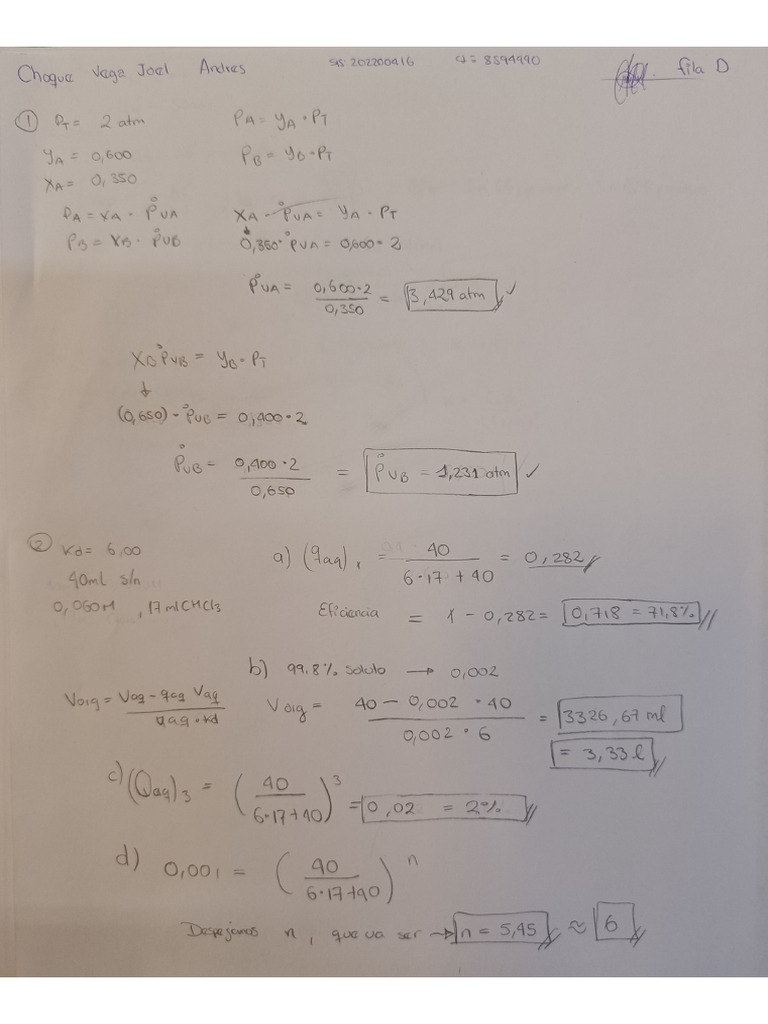 Choque Vega Joel Andres SIS: 202200416 CI = 8594990 fila D
① PT = 2 atm PA = yA · PT
yA = 0,600 PB = yB · PT
xA = 0,350
PA = xA · P°VA xA · P°VA = yA · PT
PB = xB · P°VB 0,350 · P°VA = 0,600 · 2
P°VA = 0,600·2 / 0,350 = 3,429 atm ✓
xB P°VB = yB · PT
↓
(0,650) · P°VB = 0,400 · 2
P°VB = 0,400 · 2 / 0,650 = P°VB = 1,231 atm ✓
② Kd = 6,00 a) (qaq)1 = 40 / 6·17 + 40 = 0,282
40ml s/n
0,060M, 17 ml CHCl3 Eficiencia = 1 - 0,282 = 0,718 = 71,8%
b) 99.8% soluto → 0,002
Vorg = Vaq - qaq Vaq / qaq · Kd Vorg = 40 - 0,002 · 40 / 0,002 · 6 = 3326,67 ml
= 3,33 l
c) (Qaq)3 = (40 / 6·17+40)^3 = 0,02 = 2%
d) 0,001 = (40 / 6·17+40)^n
Despejamos n, que va ser → n = 5,45 ≈ 6